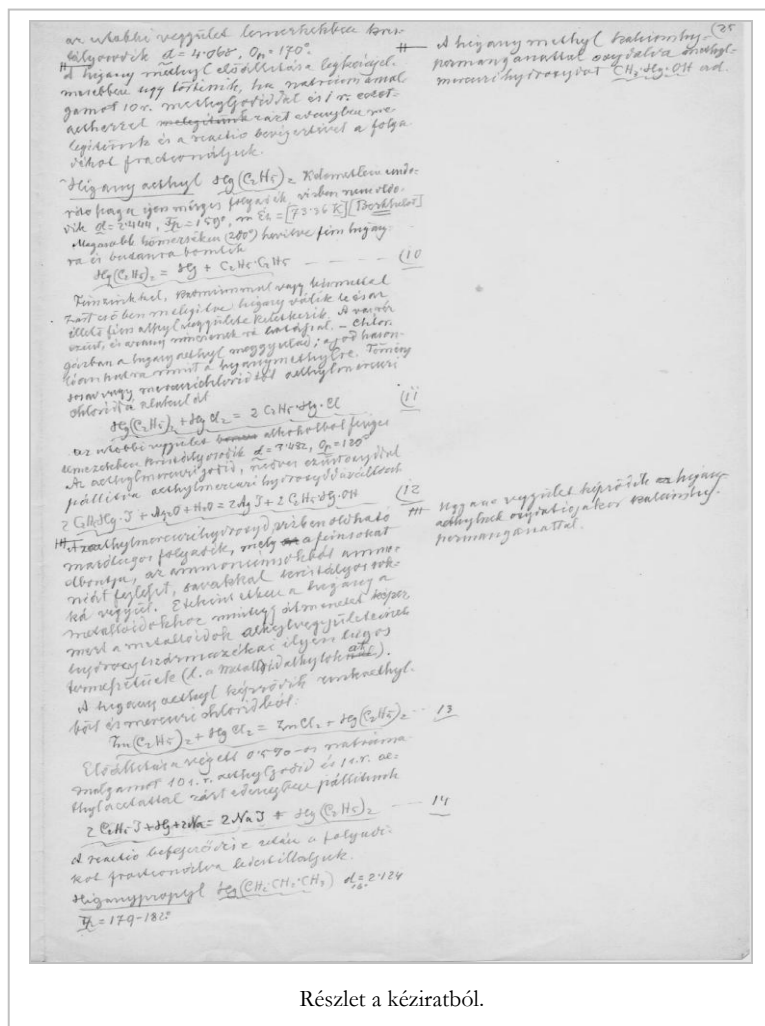 az utóbbi vegyület lemezkékben kris-
tályosodik d = 4·068, Op = 170°.
A higany methyl előállítása legkényel-
mesebben úgy történik, ha natriumamal-
gamot 10 r. methyljodiddal és 1 r. ecet-
aetherrel melegítünk zárt edényben me-
legítünk és a reactio bevégeztével a folya-
dékot fractionáljuk.
Higany aethyl Hg(C2H5)2 Kelemetlen undo-
rító szagú igen mérges folyadék, vízben nem oldó-
dik d = 2·444, Fp = 159°, [73·36 K] [Berthelot]
Magasabb hőmérséken (200°) hevítve fém higany-
ra és butanra bomlik
Hg(C2H5)2 = Hg + C2H5·C2H5 (10
Zinkkel, kadmiummal vagy bismuttal
zárt csőben melegítve higany válik le és az
illető fém aethyl vegyülete keletkezik. A vas
ezüst, és arany nincsenek rá hatással. – Chlor
gázban a higany aethyl meggyulad; a jod hason-
lóan hat rá mint a higanymethylre. Tömény
sósav vagy mercurichlorid aethylmercuri
chloriddá alakul át
Hg(C2H5)2 + HgCl2 = 2 C2H5·Hg·Cl (11
az utóbbi vegyület alkoholból fényes
lemezekben kristályosodik d = 3·482, Op = 120°
Az aethylmercurijodid, nedves ezüstoxyddal
aethylmercuri hydroxyddá
2 C2H5Hg·J + Ag2O + H2O = 2AgJ + 2 C2H5·Hg·OH (12
Az aethylmercurihydroxyd vízben oldható
marólúgos folyadék, mely a fémsókat
elbontja, az ammoniumsókból ammo-
niát fejleszt, savakkal kristályos sók-
ká vegyül. E tekintetben a higany a
metalloidokhoz mintegy átmenetet képez
mert a metalloidok alkylvegyületeinek
hydroxylszármazékai ilyen lúgos
természetűek (l. a Metalloidalkyloknál).
A higany aethyl képződik zinkaethyl-
ből és mercuri chloridból:
Zn(C2H5)2 + HgCl2 = ZnCl2 + Hg(C2H5)2 13
Előállítása végett 0·5%-os natriuma-
malgamot 10 s. r. aethyljodid és 1 s. r. ae-
thylacetattal zárt edényben
2 C2H5·J + Hg + 2Na = 2 NaJ + Hg(C2H5)2 14
A reactio befejeződése után a folyadé-
kot fractionálva ledestilláljuk.
Higanypropyl Hg(CH2·CH2·CH3) d = 2·124
16°
Fp = 179-182°
(25
A higany methyl kaliumhy-
permanganattal oxydálva methyl-
mercurihydroxydot CH3·Hg·OH ad.
Ugyane vegyület képződik higany
aethylnek oxydatiojakor kaliumhy-
permanganattal.
Részlet a kéziratból.